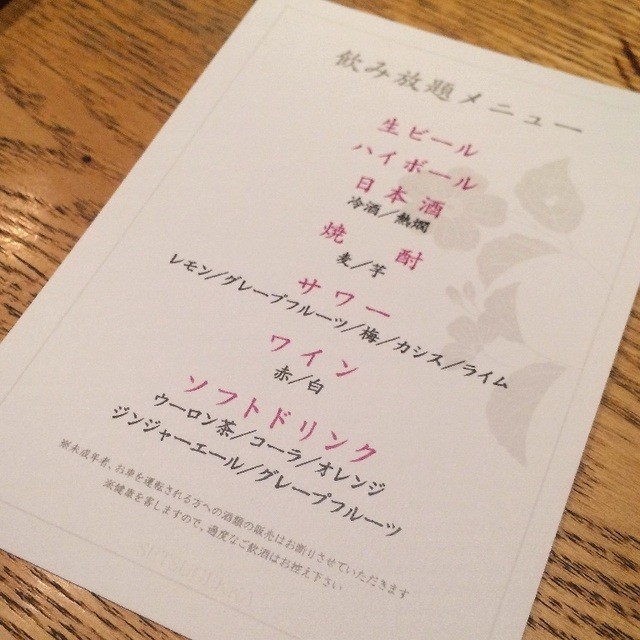 飲み放題メニュー
生ビール
ハイボール
日本酒
冷酒/熱燗
焼酎
麦/芋
サワー
レモン/グレープフルーツ/梅/カシス/ライム
ワイン
赤/白
ソフトドリンク
ウーロン茶/コーラ/オレンジ
ジンジャーエール/グレープフルーツ
※未成年者、お車を運転される方への酒類の販売はお断りさせていただきます
※健康を害しますので、過度なご飲酒はお控え下さい